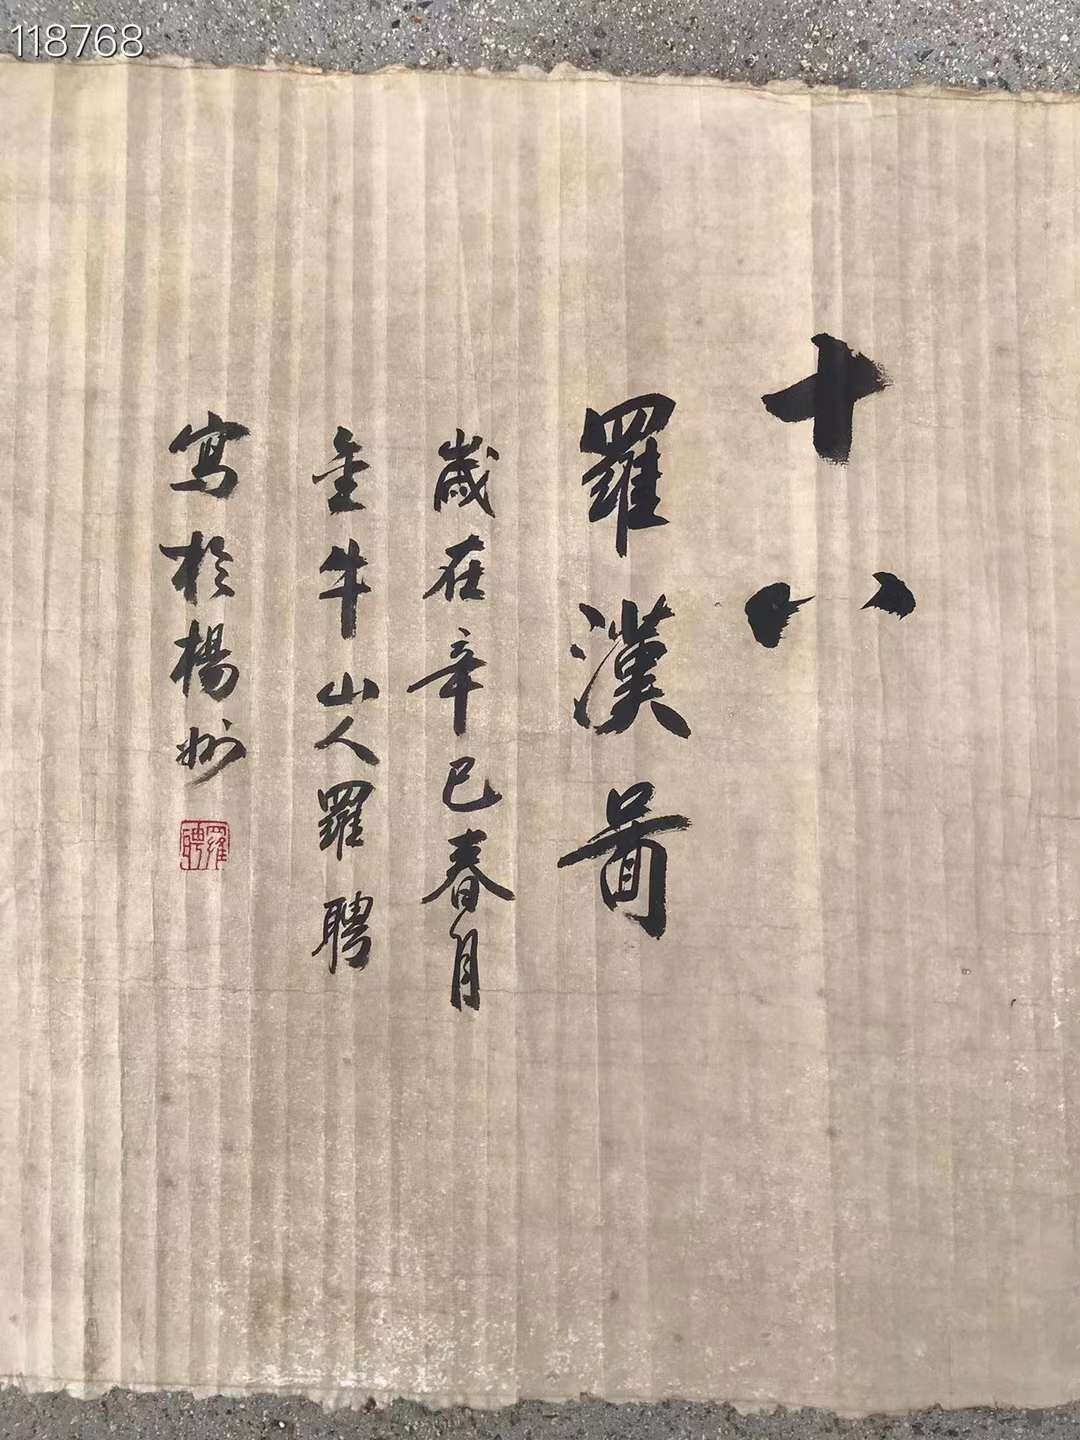 118768
十八
羅漢啚
歲在辛巳春月
金牛山人羅聘
寫於楊州
羅聘